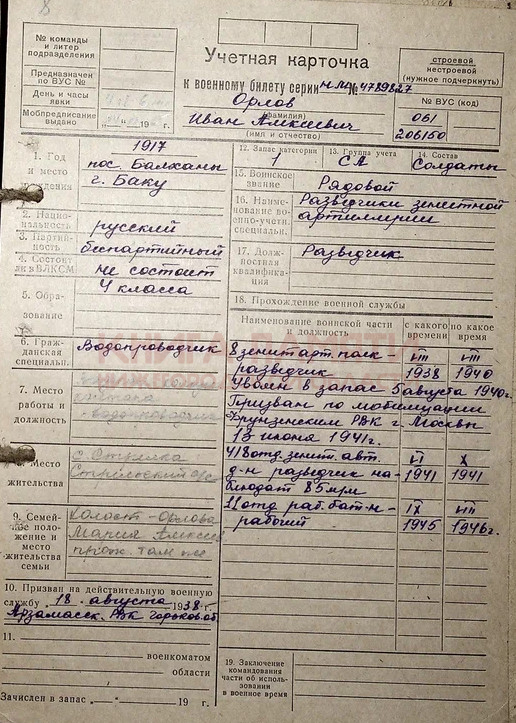 8
№ команды
и литер
подразделения
Предназначен
по ВУС №
День и часы
явки
Мобпредписание
выдано
„ “ 19 г.
Учетная карточка
к военному билету серии НЛ № 4789827
Орлов
(фамилия)
Иван Алексеевич
(имя и отчество)
строевой
нестроевой
(нужное подчеркнуть)
№ ВУС (код)
061
206150
1. Год
и место
рождения
1917
пос. Балханы
г. Баку
2. Нацио-
нальность
русский
3. Партий-
ность
беспартийный
4. Состоит
ли в ВЛКСМ
не состоит
5. Обра-
зование
4 класса
6. Граж-
данская
специальн.
Водопроводчик
7. Место
работы и
должность
8. Место
жительства
с.
9. Семей-
ное поло-
жение и
место
жительства
семьи
Холост - Орлова
Мария Алексеев
прож. там же
10. Призван на действительную военную
службу 18 августа 1938 г.
Арзамасск. РВК Горьков. об
11.
военкоматом
области
Зачислен в запас „ “ 19 г.
12. Запас категории
1
13. Группа учета
СА
14. Состав
Солдаты
15. Воинское
звание
Рядовой
16. Наимено-
вание во-
енно-учетн.
специальн.
Разведчики зенитной
артиллерии
17. Долж-
ностная
квалифика-
ция
Разведчик
18. Прохождение военной службы
Наименование воинской части
и должность
с какого
времени
по какое
время
8 зенит. арт. полк -
разведчик
VIII
1938
VIII
1940
Уволен в запас 5 августа 1940г.
Призван по мобилизации
Фрунзенским РВК г. Москвы
13 июня 1941г.
418 отд. зенит. арт.
д-н разведчик на-
блюдат 85 м/м
VI
1941
X
1941
11 отд. раб. бат-н -
рабочий
IX
1945
1946г.
19. Заключение
командования
части об исполь-
зовании
в военное время
КНИГА ПАМЯТИ